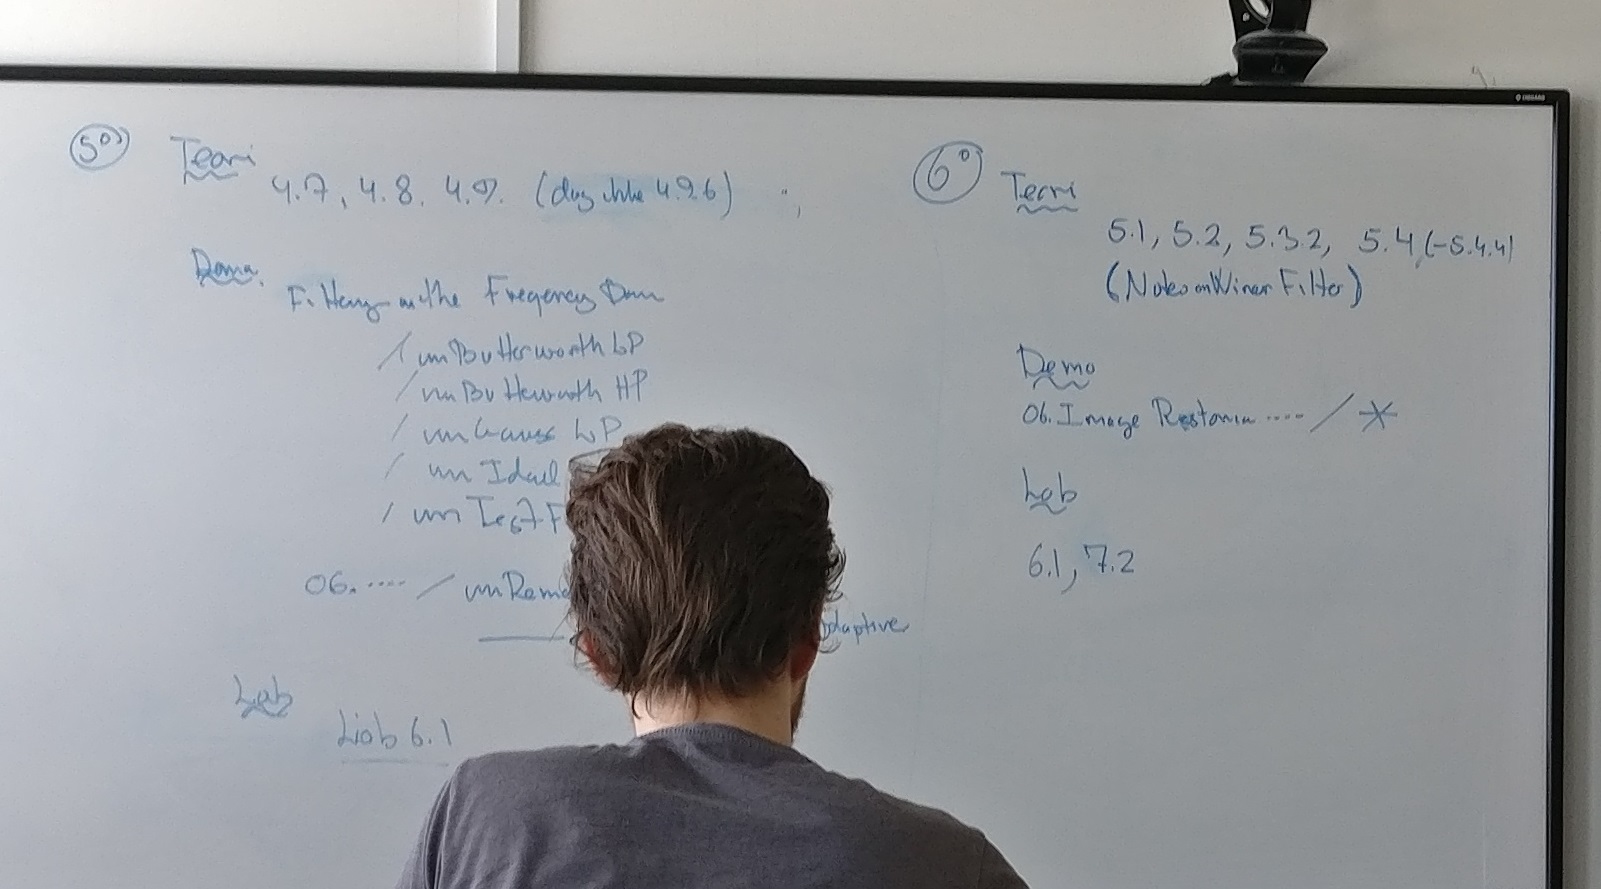 5⁰)
Teori
4.7, 4.8, 4.9. (dog ikke 4.9.6)
Demo.
Filtering in the Freqency Dom
/ vmButterworth LP
/ vmButterworth HP
/ vmGauss LP
/ vm Ideal
/ vm Test F
06. .... / vmRem
adaptive
Lab
Lab 6.1
6⁰
Teori
5.1, 5.2, 5.3.2, 5.4 (-5.4.4)
(Notes on Winer Filter)
Demo
06. Image Restoration .... / *
Lab
6.1, 7.2